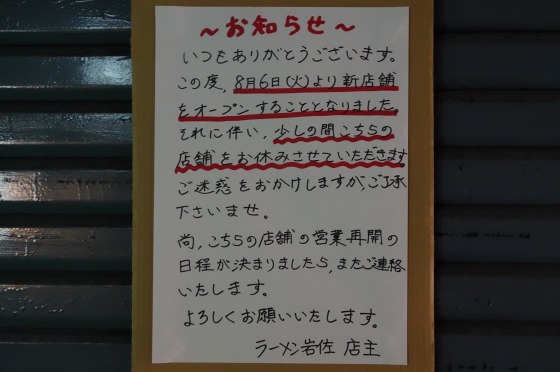 〜お知らせ〜
いつもありがとうございます。
この度、8月6日(火)より新店舗
をオープンすることとなりました。
それに伴い、少しの間こちらの
店舗をお休みさせていただきます
ご迷惑をおかけしますが、ご了承
下さいませ。
尚、こちらの店舗の営業再開の
日程が決まりましたら、またご連絡
いたします。
よろしくお願いいたします。
ラーメン岩佐 店主